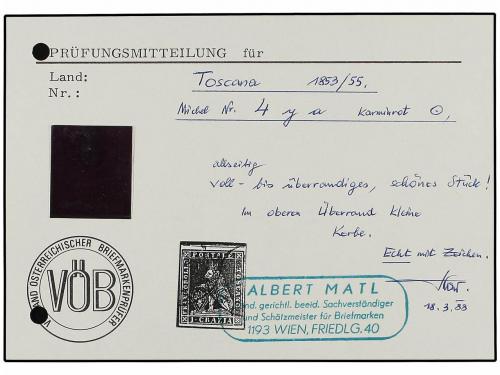 PRÜFUNGSMITTEILUNG für
Land: Toscana 1853/55.
Nr.: Michel Nr. 4 y a karminrot ⊙,
allseitig
voll- bis überrandiges, schönes Stück!
Im oberen Überrand kleine
Kerbe.
Echt mit Zeichen.
18.3.83
ÖSTERREICHISCHER BRIEFMARKENPRÜFER
VÖB
1 CRAZIA
ALBERT MATL
nd. gerichtl. beeid. Sachverständiger
und Schätzmeister für Briefmarken
1193 WIEN, FRIEDLG. 40